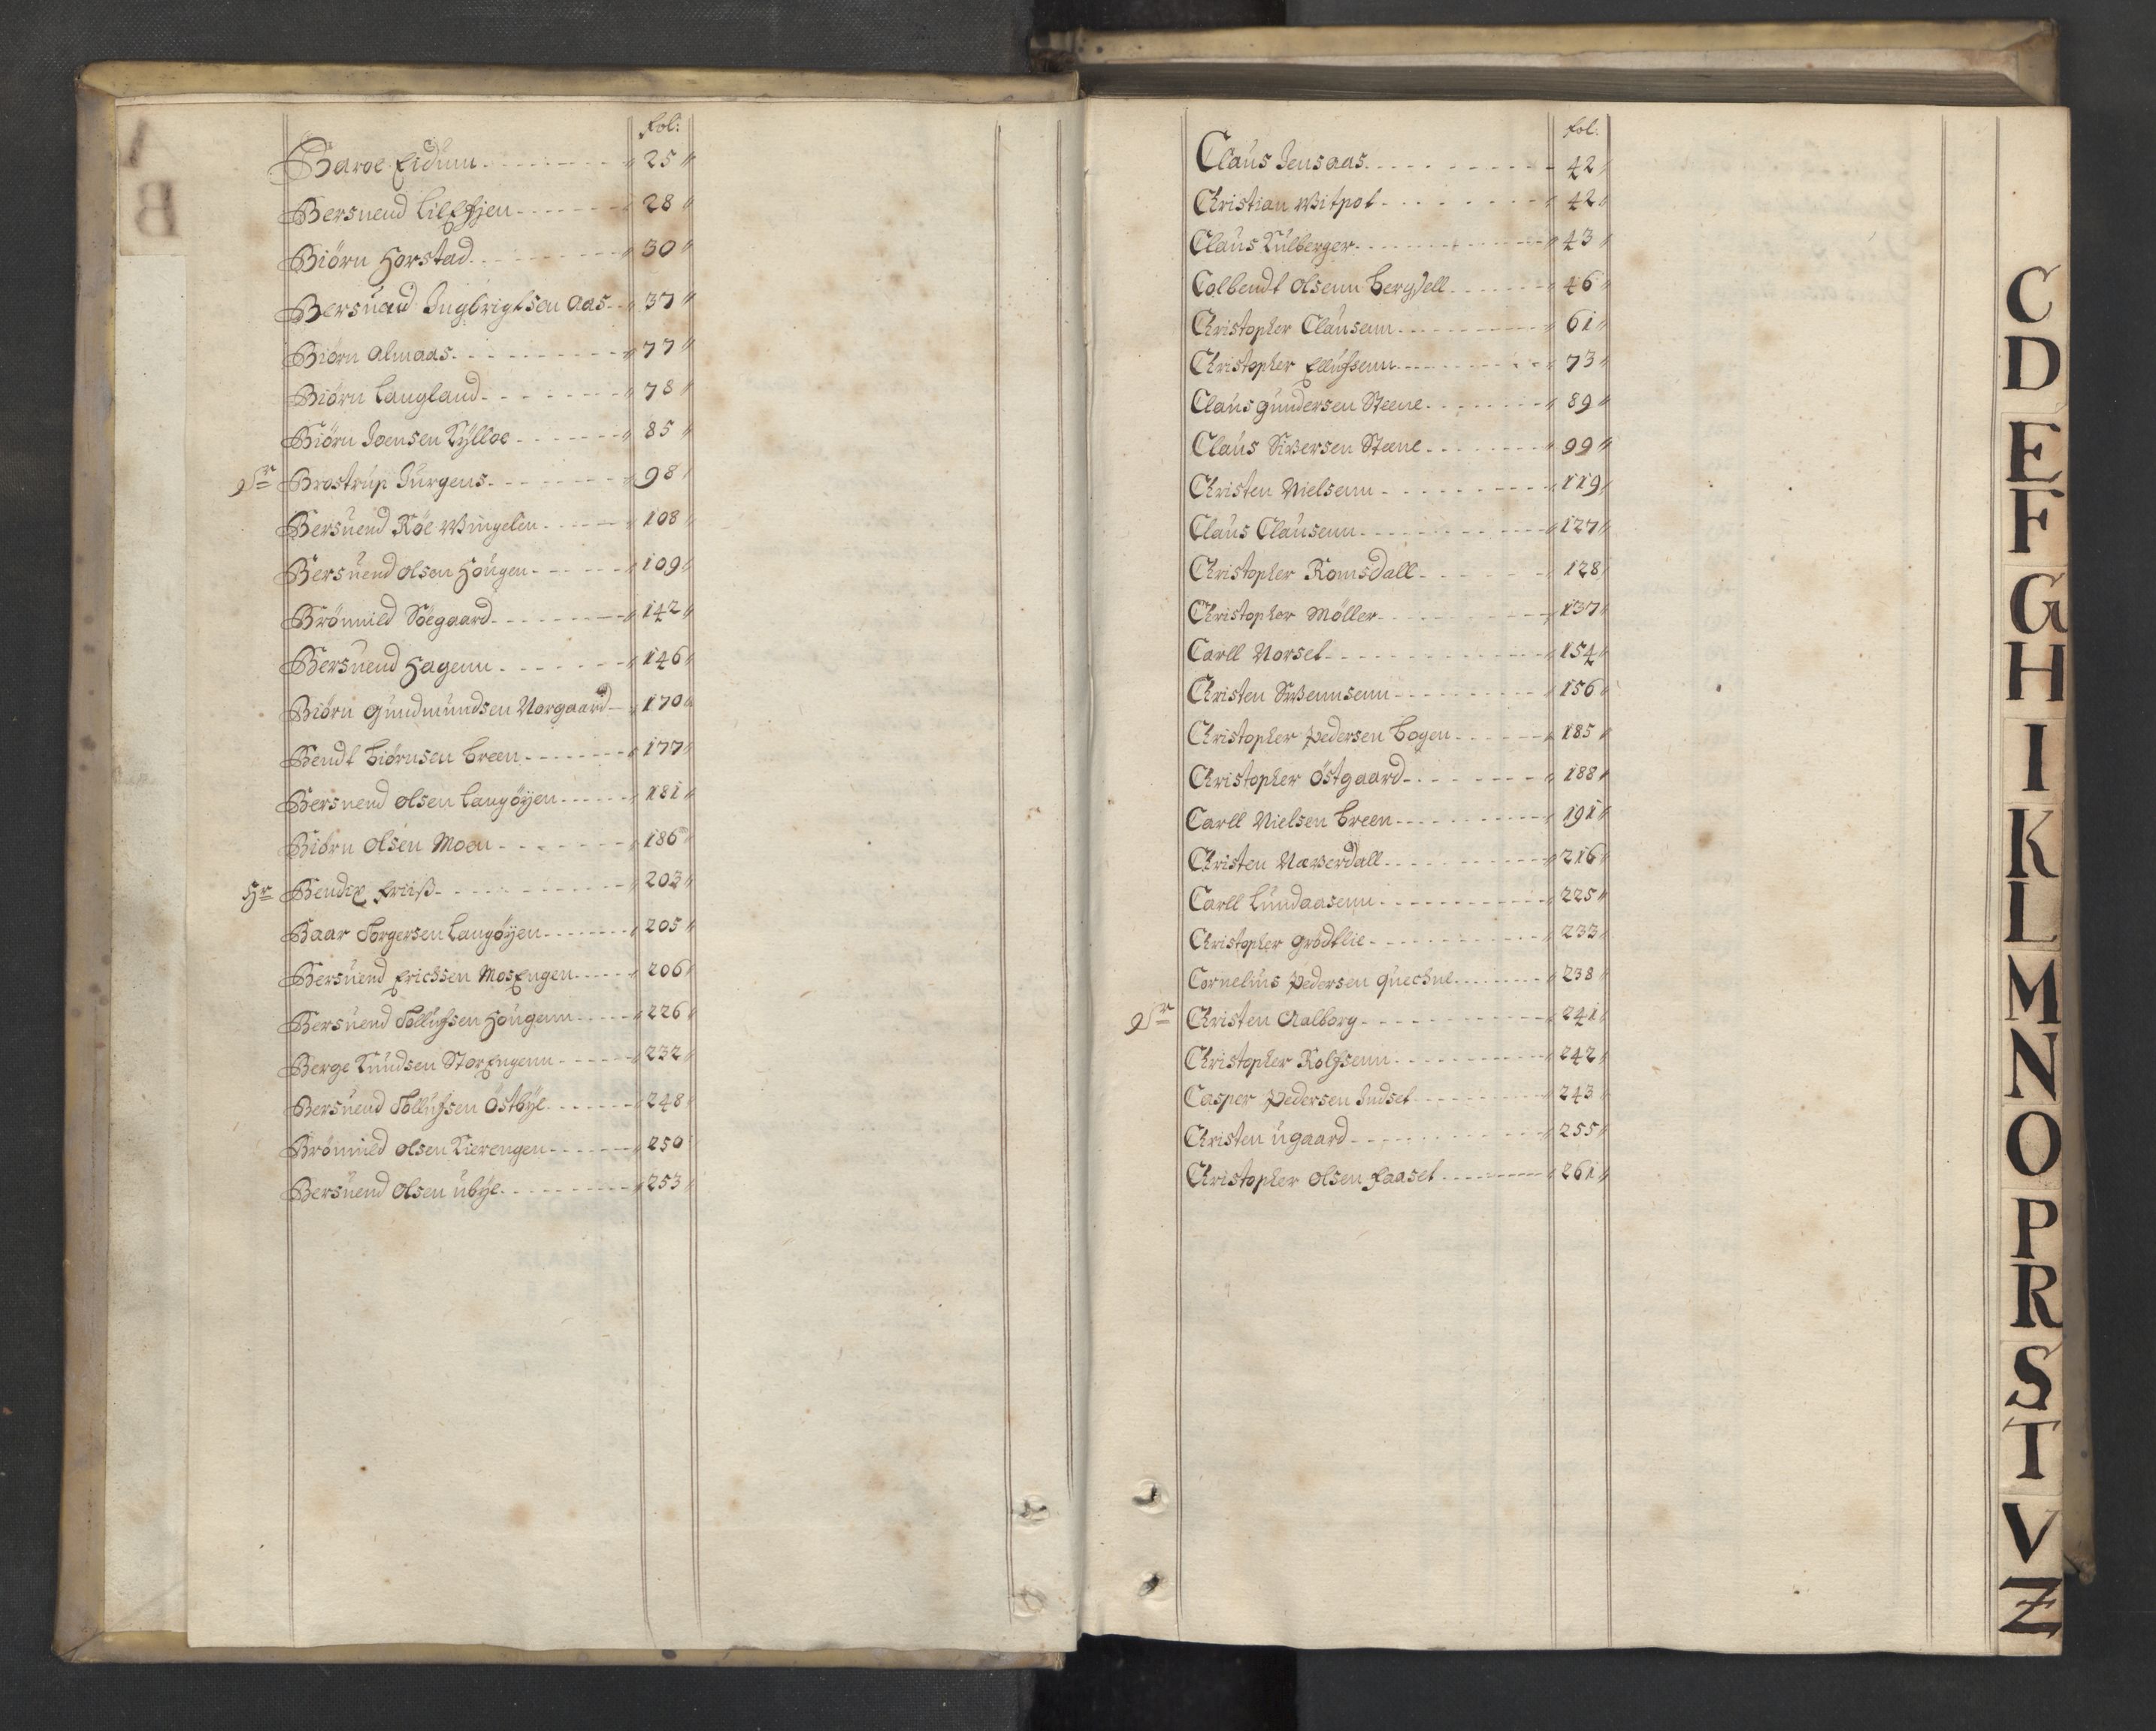 A
B
fol:
Baroe Eidum 25
Bersuend Lill Ejen 28
Biørn Horstad 30
Bersuend Ingbrigtsen Aas 37
Biørn Almaas 77
Biørn Langland 78
Biørn Joensen Kÿlloe 85
Sr Brostrup Jürgens 98
Bersuend Røe Wingelen 108
Bersuend Olsen Hougen 109
Brønnild Söegaard 142
Bersuend Hagenn 146
Biørn Gundmundsen Norgaard 170
Bendt Biørnsen Breen 177
Bersuend Olsen Langøÿen 181
Biørn Olsen Moen 186
Hr Bendix Friiß 203
Baar Torgersen Langøÿen 205
Bersuend Erichsen MosEngen 206
Bersuend Tollufsen Hougenn 226
Berge Knudsen StorEngenn 232
Bersuend Tollufsen Östbÿe 248
Brønnild Olsen Kierengen 250
Bersuend Olsen Übÿe 253
fol:
Claus Jensaas 42
Christian Witpot 42
Claus Külberger 43
Colbendt Olsenn Bergsell 46
Christopher Clausenn 61
Christopher Ellufsenn 73
Claus Gundersen Steene 89
Claus Siversen Steene 99
Christen Nielsenn 119
Claus Clausenn 127
Christopher Romsdall 128
Christopher Möller 137
Carll Norset 154
Christen Svennsenn 156
Christopher Pedersen Bogen 185
Christopher Östgaard 188
Carll Nielsen Breen 191
Christen Næverdall 216
Carll Lundaasenn 225
Christopher Grödtlie 233
Cornelius Pedersen Quechne 238
Sr Christen Aalborg 241
Christopher Rolfsenn 242
Casper Pedersen Indset 243
Christen Ugaard 255
Christopher Olsen Faaset 261
C
D
E
F
G
H
I
K
L
M
N
O
P
R
S
T
V
Z